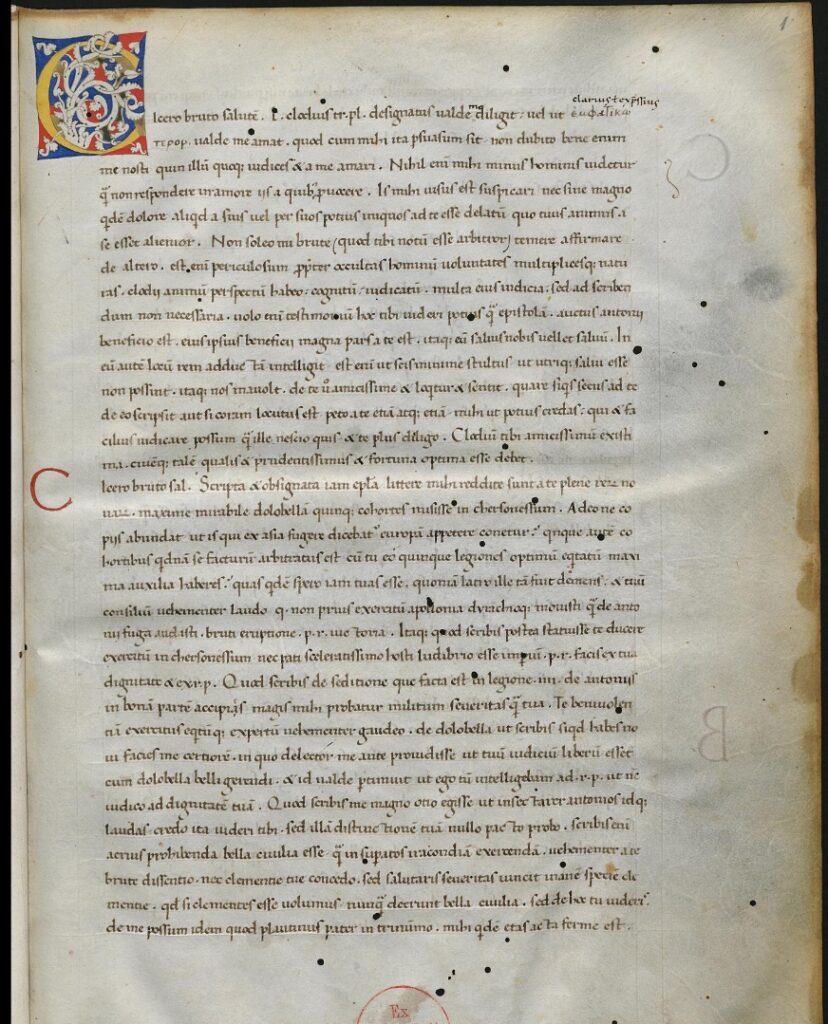 1
clarius t exp̄ssius
Cicero bruto salutē . L . clodius tr . pl . designatus valde mā diligit . vel ut ἐμφατικώ
τεροp . valde me amat . quod cum mihi ita ꝑsuasum sit . non dubito bene enim
me nosti quin illū quoq; iudices & a me amari . Nihil enī mihi minus hominis videtur
q̄ non respondere in amore iis a quib; ꝓvocere . Is mihi visus est suspicari nec sine magno
qdē dolore aliqd a suis vel per suos potius iniquos ad te esse delatū quo tuus animus a
se esset alienior . Non soleo mi brute (quod tibi notū esse arbitror) temere affirmare
de altero . est enī periculosum ꝓpter occultas hominū voluntates multiplicesq; natu
ras . clodii animū perspectū habeo . cognitū . iudicatū . multa eius iudicia . sed ad scriben
dum non necessaria . volo enī testimoniū hoc tibi videri potius q̄ epistolā . auctus antonii
beneficio est . eius ipsius beneficii magna pars a te est . itaq; eū salvis nobis vellet salvū . In
eū autē locū rem adductā intelligit . est enī ut scis minime stultus ut utriq; salvi esse
non possint . itaq; nos mavolt . de te v̄ amicissime & loq̄tur & sentit . quare siq̄s secus ad te
de eo scripsit aut si coram locutus est peto a te etiā atq; etiā . mihi ut potius credas . qui & fa
cilius iudicare possum q̄ ille nescio quis . & te plus diligo . Clodiū tibi amicissimū existi
ma . civēq; talē qualis & prudentissimus & fortuna optima esse debet .
Cicero bruto sal . Scripta & obsignata iam epl̄a . littere mihi reddite sunt a te plene rerꝝ no
varꝝ . maxime mirabile dolobellā quinq; cohortes misisse in chersonessum . Adeo ne co
piis abundat ut is qui ex asia fugere dicebat᷑ europā appetere conetur ? qnque autē co
hortibus qdnā se facturū arbitratus est . cū tu eo quinque legiones optimū eqtatū maxi
ma auxilia haberes ? quas qdē spero iam tuas esse . quoniā latro ille tā fuit demens . & tuū
consiliū vehementer laudo q . non prius exercitū apollonia dyrachioq; movisti q̄ de anto
nii fuga audisti . bruti eruptione . p . r . victoria . Itaq; quod scribis postea statuisse te ducere
exercitū in chersonessum nec pati sceleratissimo hosti ludibrio esse imp̄iū . p . r . facis ex tua
dignitate & ex r . p . Quod scribis de seditione que facta est in legione . iiii . de antoniis
in bonā partē accipias magis mihi probatur militum severitas q̄ tua . Te benivolen
tiā exercitus eqtūq; expertū vehementer gaudeo . de dolobella ut scribis siqd habes no
vi facies me certiorē . in quo delector me ante providisse ut tuū iudiciū liberū esset
cum dolobella belli gerendi . & id valde ꝑtinuit ut ego tū intelligebam ad . r . p . ut nc̄
iudico ad dignitatē tuā . Quod scribis me magno otio egisse ut insectarer antonios idq;
laudas . credo ita videri tibi . sed illā distinctionē tuā nullo pacto probo . scribis enī
acrius prohibenda bella civilia esse q̄ in suꝑatos iracondiā exercendā . vehementer a te
brute dissentio . nec clementie tue concedo . sed salutaris severitas vincit inanē speciē cle
mentie . qd si clementes esse volumus . nunq̄ deerunt bella civilia . sed de hoc tu videris .
de me possum idem quod plautinus pater in trinūmo . mihi qdē etas acta ferme est .
Ex